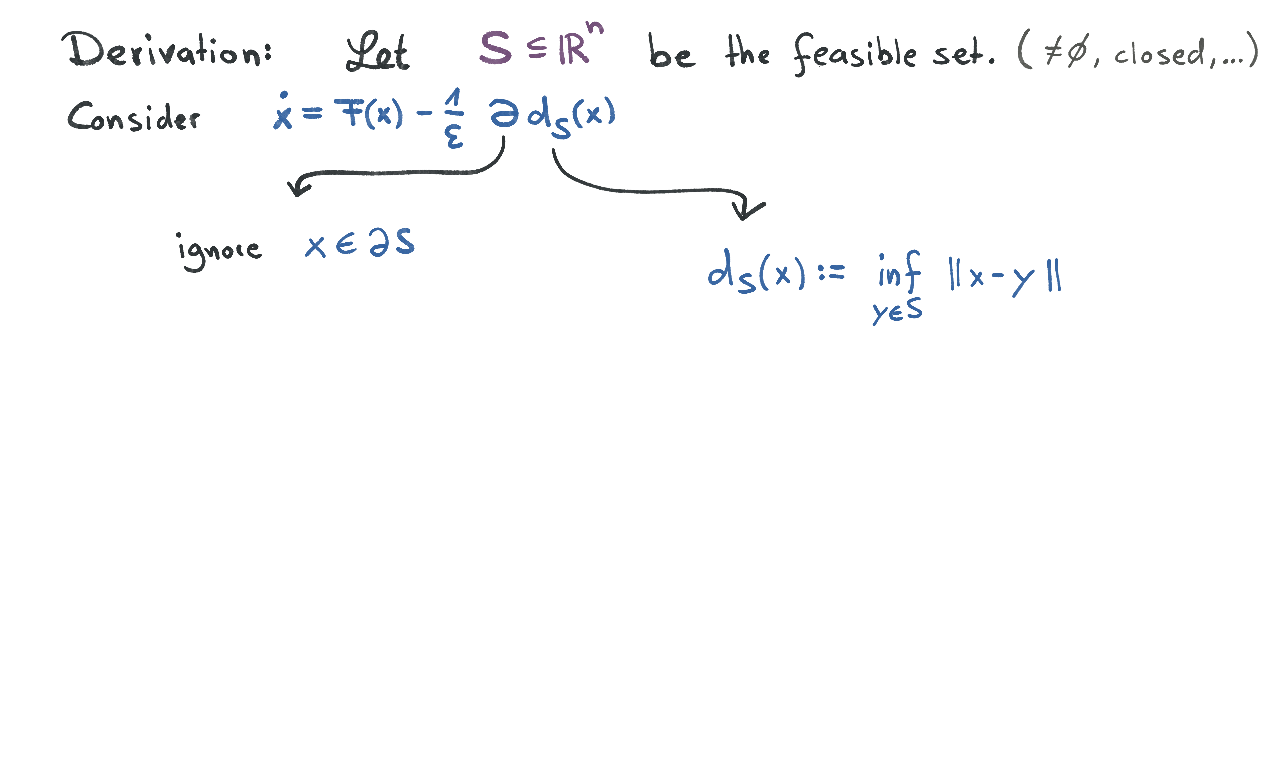 Derivation: Let S ⊆ ℝⁿ be the feasible set. (≠∅, closed,...)
Consider ẋ = F(x) - 1/ε ∂ d_S(x)
ignore x ∈ ∂S
d_S(x) := inf_{y∈S} ||x-y||